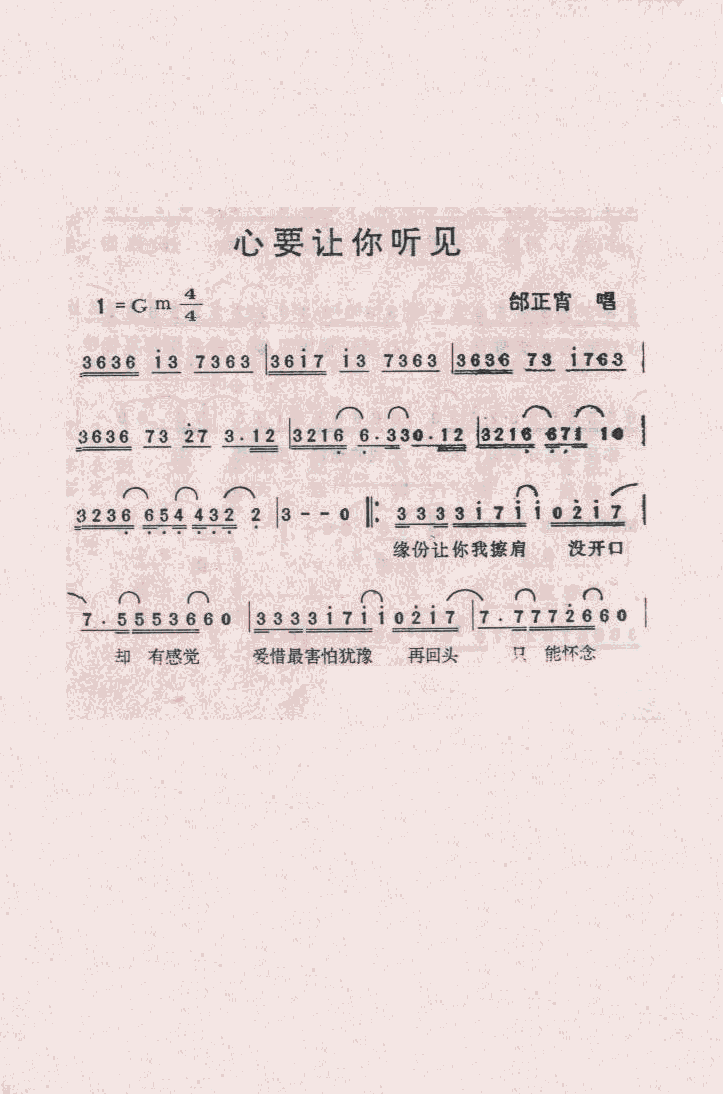 心要让你听见
1 = G m 4/4
邰正宵 唱
3636 i3 7363 | 36i7 i3 7363 | 3636 73 i763 |
3636 73 2̇7 3·12 | 3216 6·330·12 | 3216 671 10 |
3236 654 432 2 | 3 - - 0 ‖: 33333i7i i 02̇i7 |
缘份让你我擦肩 没开口
7·55553660 | 3333i7ii02̇i7 | 7·77772̇660 |
却 有感觉 爱惜最害怕犹豫 再回头 只 能怀念